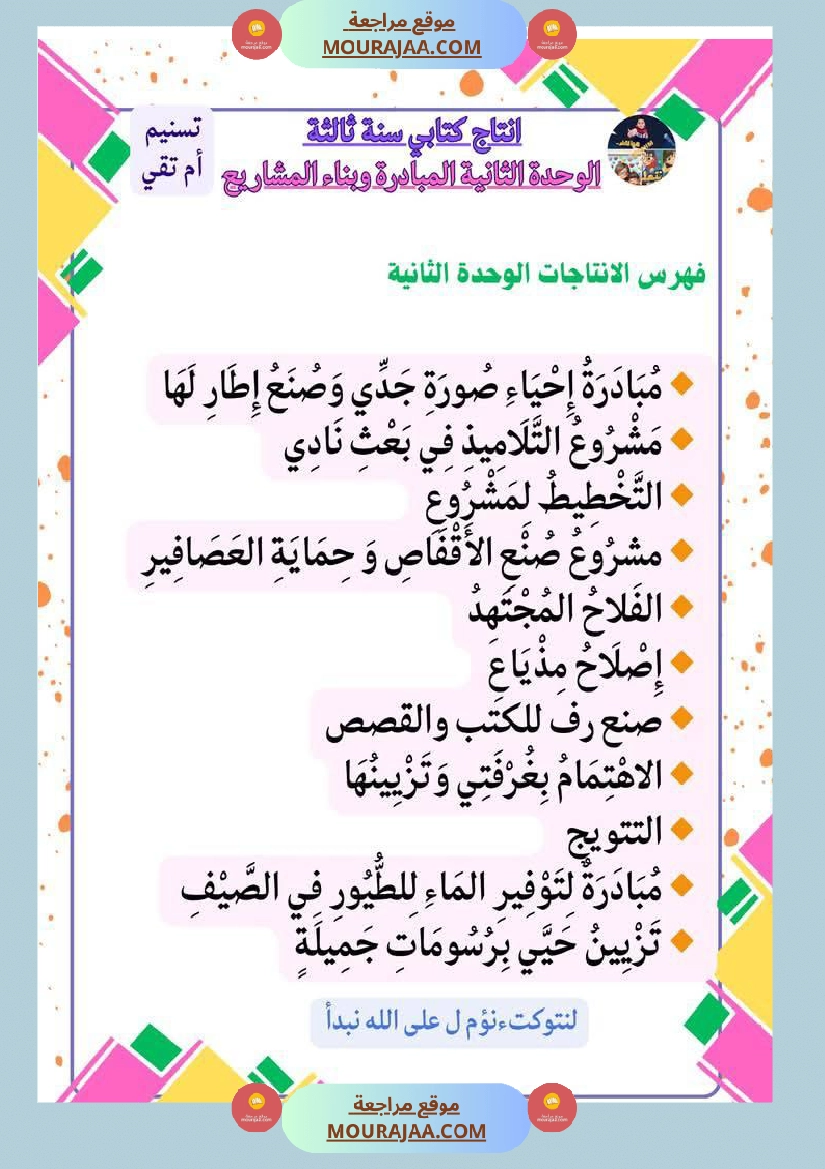 موقع مراجعة
MOURAJAA.COM
انتاج كتابي سنة ثالثة
الوحدة الثانية المبادرة وبناء المشاريع
تسنيم
أم تقي
فهرس الانتاجات الوحدة الثانية
مُبَادَرَةُ إِحْيَاءِ صُورَةِ جَدِّي وَصُنَعُ إِطَارِ لَهَا
مَشْرُوعُ التَّلَامِيذِ فِي بَعْثِ نَادِي
التَّخْطِيطُ لمَشْرُوعِ
مشرُوعُ صُنْعِ الأَقْفَاصِ وَ حِمَايَةِ العَصَافِيرِ
الفَلاحُ المُجْتَهِدُ
إِصْلَاحُ مِذْيَاعَ
صنع رف للكتب والقصص
الاهْتِمَامُ بِغُرْفَتِي وَتَزْيِينُهَا
التتويج
مُبَادَرَةٌ لِتَوْفِيرِ المَاءِ لِلطُّيُورِ فِي الصَّيْفِ
تَزْيِينُ حَيَّي بِرُسُومَاتِ جَمِيلَةٍ
لنتوكتءنؤم ل على الله نبدأ
موقع مراجعة
MOURAJAA.COM